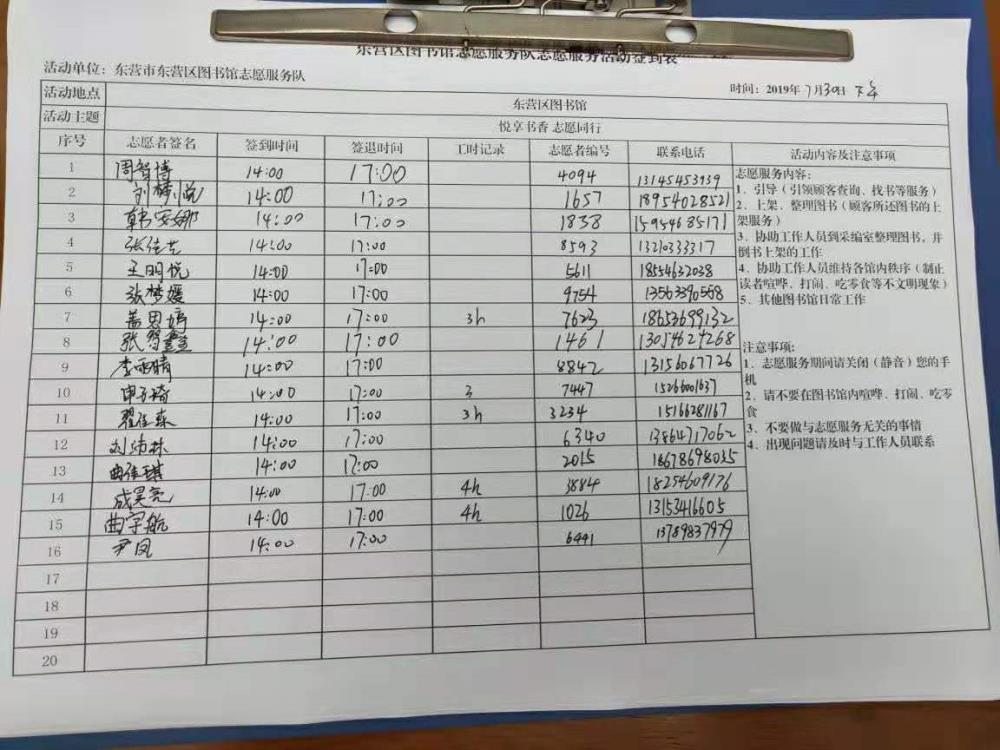 东营区图书馆志愿服务队志愿服务活动签到表
活动单位：东营市东营区图书馆志愿服务队
时间：2019年7月30日 下午
活动地点 东营区图书馆
活动主题 悦享书香 志愿同行
序号 志愿者签名 签到时间 签退时间 工时记录 志愿者编号 联系电话 活动内容及注意事项
1 周智博 14:00 17:00 4094 13145453939
2 刘梦悦 14:00 17:00 1657 18954028521
3 韩安娜 14:00 17:00 1838 15954685171
4 张佳艺 14:00 17:00 8593 13210333317
5 王明悦 14:00 17:00 5611 18554632038
6 张梦媛 14:00 17:00 9754 13563390568
7 盖思婷 14:00 17:00 3h 7623 18653699132
8 张智鑫 14:00 17:00 1461 13054624268
9 李雨晴 14:00 17:00 8842 13156067726
10 申子琦 14:00 17:00 3 7447 15266001637
11 翟佳森 14:00 17:00 3h 3234 15166281167
12 14:00 17:00 6340 13864717062
13 曲佳琪 14:00 17:00 2015 18678698035
14 成昊亮 14:00 17:00 4h 3884 18254609176
15 曲宇航 14:00 17:00 4h 1026 13153416605
16 尹凤 14:00 17:00 6441 13789837979
17
18
19
20
志愿服务内容：
1、引导（引领顾客查询、找书等服务）
2、上架、整理图书（顾客所还图书的上
架服务）
3、协助工作人员到采编室整理图书，并
倒书上架的工作
4、协助工作人员维持各馆内秩序（制止
读者喧哗、打闹、吃零食等不文明现象）
5、其他图书馆日常工作
注意事项：
1、志愿服务期间请关闭（静音）您的手
机
2、请不要在图书馆内喧哗、打闹、吃零
食
3、不要做与志愿服务无关的事情
4、出现问题请及时与工作人员联系